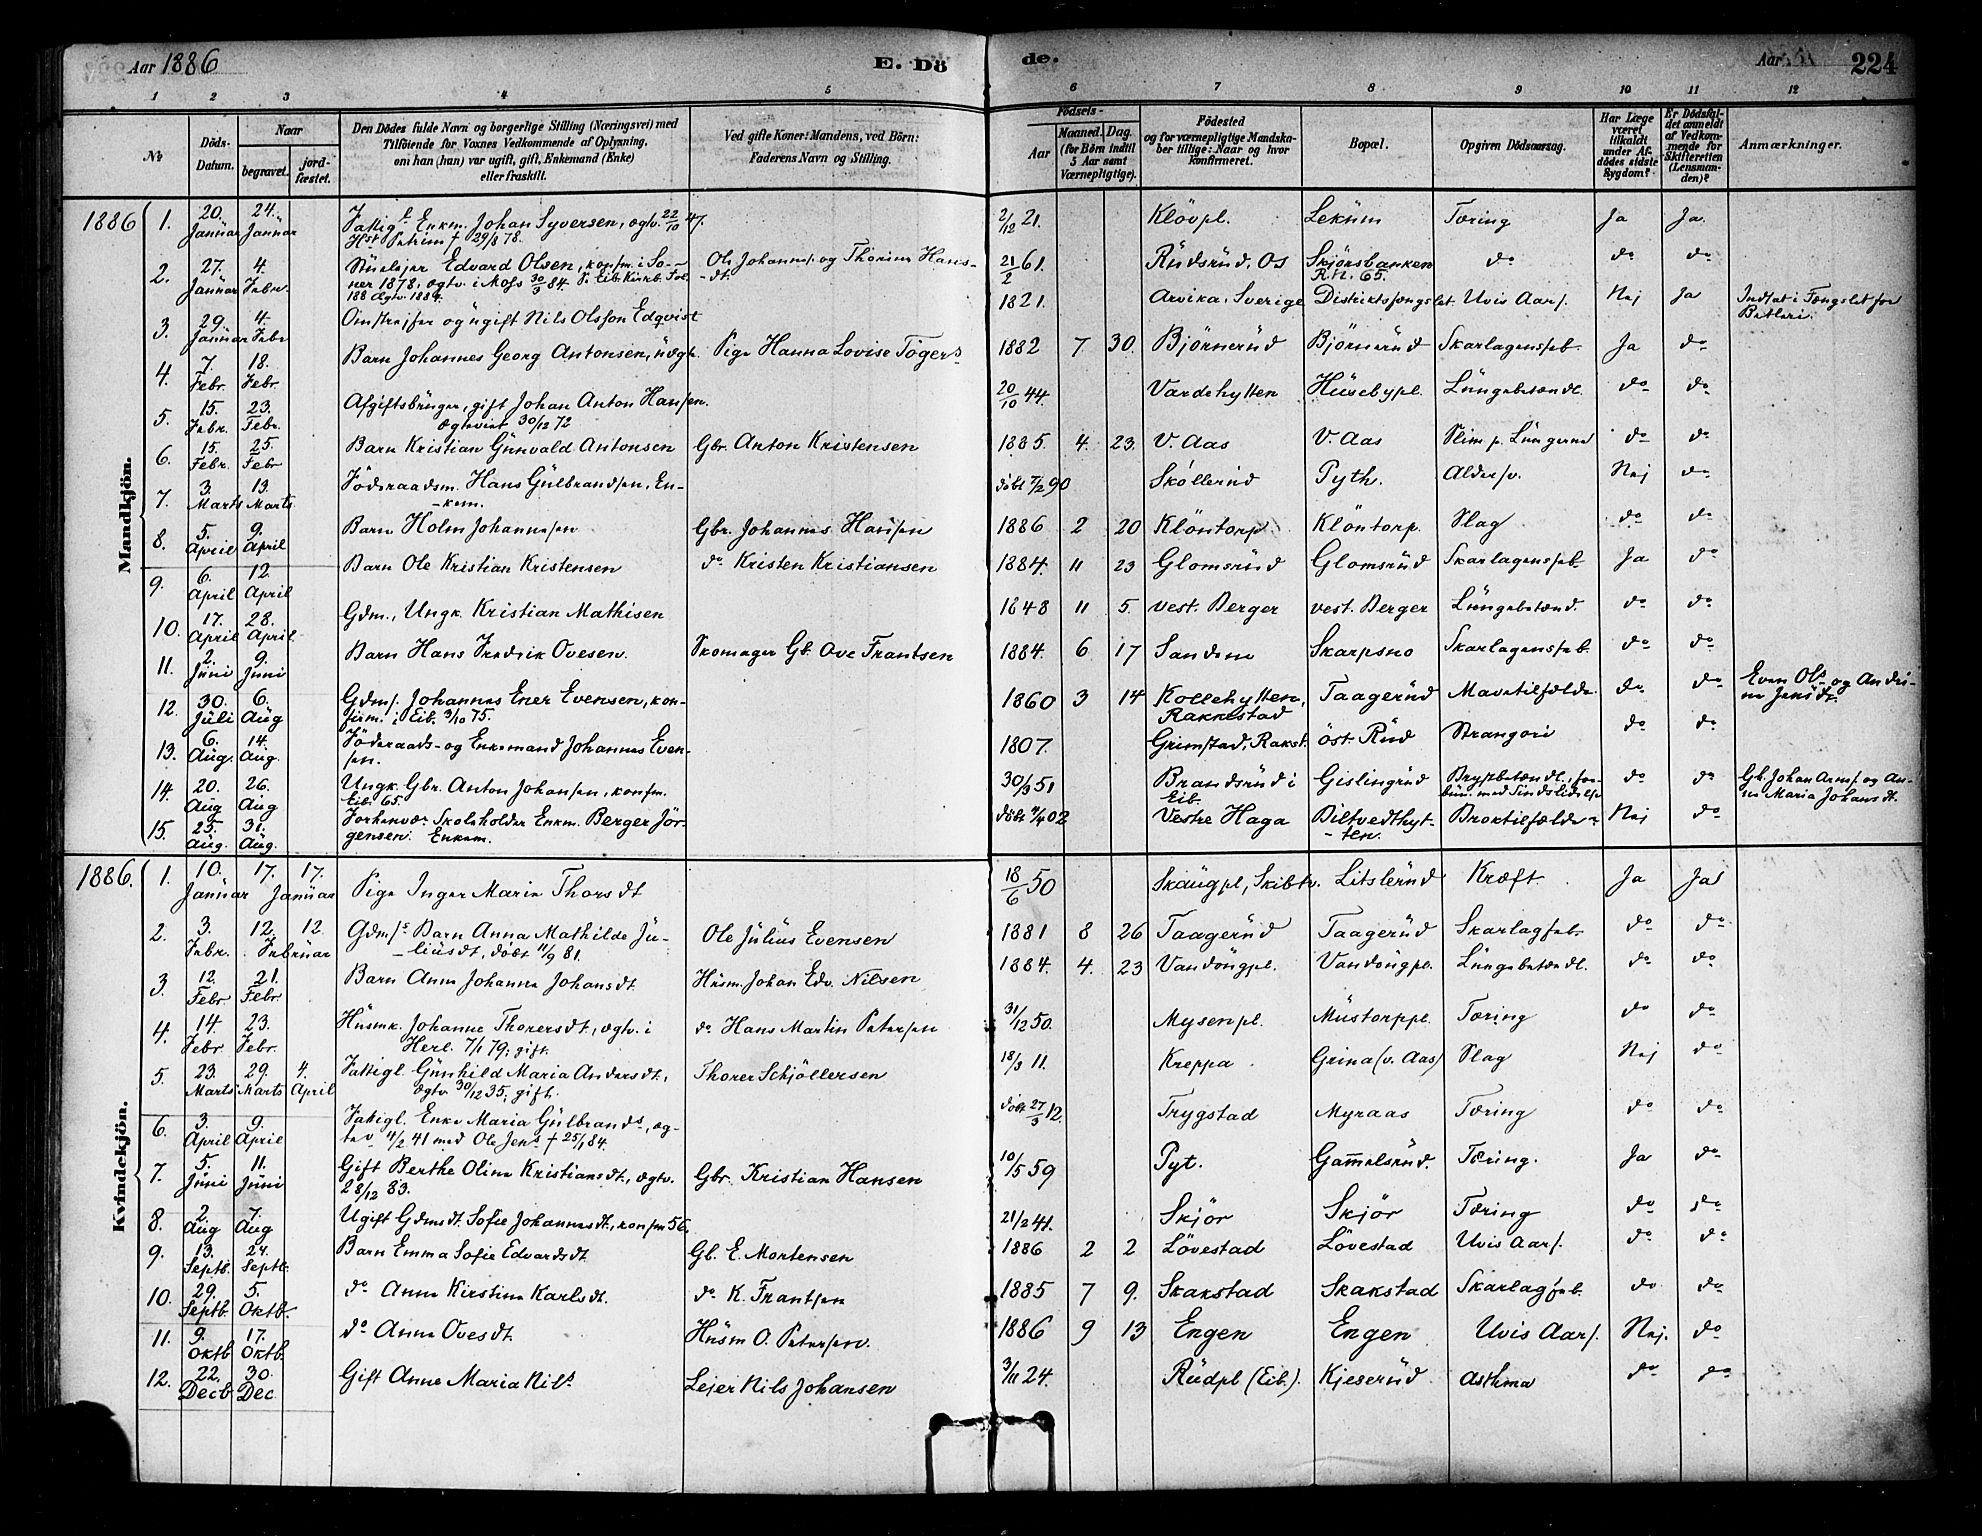 Aar 1886 E. Dö de. Aar 224
1 2 3 4 5 6 7 8 9 10 11 12
No Döds-Datum. Naar begravet. jord-fæstet. Den Dödes fulde Navn og borgerlige Stilling (Næringsvei) med Tilföiende for Voxnes Vedkommende af Oplysning, om han (hun) var ugift, gift, Enkemand (Enke) eller fraskilt. Ved gifte Koner: Mandens, ved Börn: Faderens Navn og Stilling. Födsels- Aar Maaned. Dag. (for Börn indtil 5 Aar samt Værnepligtige). Födested og for værnepligtige Mandskaber tillige: Naar og hvor konfirmeret. Bopæl. Opgiven Dödsaarsag. Har Læge været tilkaldt under Afdödes sidste Sygdom? Er Dödsfaldet anmeldt af Vedkommende for Skifteretten (Lensmanden)? Anmærkninger.
Mandkjön.
1886 1. 20. Januar 24. Januar Fattigl. Enkm. Johan Syversen, ægtv. 22/10 47. Hst Petrim † 29/8 78. 2/12 21. Klövpl. Lekum Tæring Ja Ja
2. 27. Januar 4. Febr. Edvard Olsen, konfm. i So-ner 1878, ægtv. i Moss 30/3 84. 188 Ægtv. 1884. Ole Johanns. og Thorine Hans-dt. 21/2 61. Rudsrud, Os Skjörsbanken R.N. 65. do do do
3. 29. Januar 4. Febr Omstrejfer og ugift Nils Olsson Edqvist 1821. Arvika, Sverige Distriktsfængslet. Uvis Aars. Nej Ja Indsat i Fængslet for Betleri.
4. 7. Febr. 18. Febr. Barn Johannes Georg Antonsen, uægt. Pige Hanna Lovise Tögers- 1882 7 30. Björnerud Björnerud Skarlagensfeb. Ja do
5. 15. Febr. 23. Febr. Afgiftsbruger, gift Johan Anton Hansen. Ægteviet 30/12 72 20/10 44. Vardehytten Husebypl. Lungebetændl. do do
6. 15. Febr. 25. Febr Barn Kristian Gunvald Antonsen Gbr. Anton Kristensen 1885. 4. 23. V. Aas V. Aas Slim p. Lungerne do do
7. 3. Marts 13. Marts. Föderaadsm. Hans Gulbrandsen, En-kem. döbt 7/2 90 Sköllerud Pyth. Aldersv. Nej do
8. 5. April 9. April Barn Holm Johannesen Gbr. Johannes Hansen 1886 2 20 Klöntorp Klöntorp. Slag do do
9. 6. April 12. April Barn Ole Kristian Kristensen do Kristen Kristiansen 1884. 11 23 Glomsrud Glomsrud Skarlagensfeb Ja do
10. 17. April 28. April Gdm., Ungk. Kristian Mathisen 1848 11 5. vest. Berger vest. Berger Lungebetænd. do do
11. 2. Juni 9. Juni Barn Hans Fredrik Ovesen. Skomager Gb. Ove Frantsen 1884. 6 17 Sandem Skarpsno Skarlagensfeb. do do
12. 30. Juli 6. Aug Gdms. Johannes Ener Evensen, kon-firm. i Eib. 3/10 75. 1860 3 14 Kollehytten, Rakkestad Taagerud Mavetilfælde. do do Even Ols. og Andri-ne Jensdt.
13. 6. Aug. 14. Aug. Föderaads- og Enkemand Johannes Even-sen. 1807. Grimstad, Rakst. öst. Rud Strangori do do
14. 20. Aug 26. Aug Ungk. Gbr. Anton Johansen, konfm. Eib. 65. 30/9 51 Brandsrud i Eib. Gislingrud Brystbetændl., for-bun. med Sindslidelse do do Gb. Johan Arns. og An-ne Maria Johansdt.
15. 25. Aug. 31. Aug. Forhenvær. Skoleholder Enkm. Berger Jör-gensen. Enkem. döbt 4/4 02 Vestre Haga Biltvedthyt-ten. Broktilfælde Nej do
Kvindekjön.
1886. 1. 10. Januar 17. 17. Januar Pige Inger Marie Thorsdt 18/6 50 Skaugpl, Skibtv. Litslerud Kræft. Ja Ja
2. 3. Febr. 12. 12. Februar Gdms Barn Anna Mathilde Ju-liusdt, döbt 11/9 81. Ole Julius Evensen 1881 8 26 Taagerud Taagerud Skarlagfeb. do do
3. 12. Febr 21. Febr Barn Anna Johanna Johansdt. Husm. Johan Edv. Nilsen 1884. 4. 23 Vandöngpl. Vandöngpl. Lungebetændl. do do
4. 14. Febr 23. Febr. Husmk. Johanne Thorersdt, ægtv. i Herl. 7/1 79; gift. do Hans Martin Petersen 31/12 50. Mysenpl. Mustorppl. Tæring do do
5. 23. Marts 29. Marts 4. April Fattigl. Gunhild Maria Andersdt., ægtv 30/12 35; gift. Thorer Schjöllersen 18/3 11. Kreppa Grina (v. Aas) Slag Nej do
6. 3. April 9. April Fattigl. Enke Maria Gulbrands., æg-tev 11/2 41 med Ole Jens. † 25/1 84. döbt 27/3 12. Trygstad Myraas Tæring do do
7. 5. Juni 11. Juni Gift Berthe Oline Kristiansdt., ægtv. 28/12 83. Gbr. Kristian Hansen 10/5 59 Pyt. Gammelsrud. Tæring. Ja do
8. 2. Aug 7. Aug Ugift Gdmsdt. Sofie Johannesdt, konfm 56. 21/2 41. Skjör Skjör Tæring do do
9. 13. Septb. 24. Septb. Barn Emma Sofie Edvardsdt Gb. E. Mortensen 1886 2 2 Lövestad Lövestad Uvis Aars. do do
10. 29. Septb. 5. Oktb. do Anna Kirstine Karlsdt. do K. Frantsen 1885 7 9. Skakstad Skakstad Skarlagfeb. do do
11. 9. Oktb 17. Oktb. do Anna Ovesdt. Husm O. Petersen. 1886 9 13 Engen Engen Uvis Aars. Nej. do
12. 22. Decb 30. Dec. Gift Anne Maria Nils. Lejer Nils Johansen 3/11 24. Rudpl (Eib.). Kjeserud Asthma do do